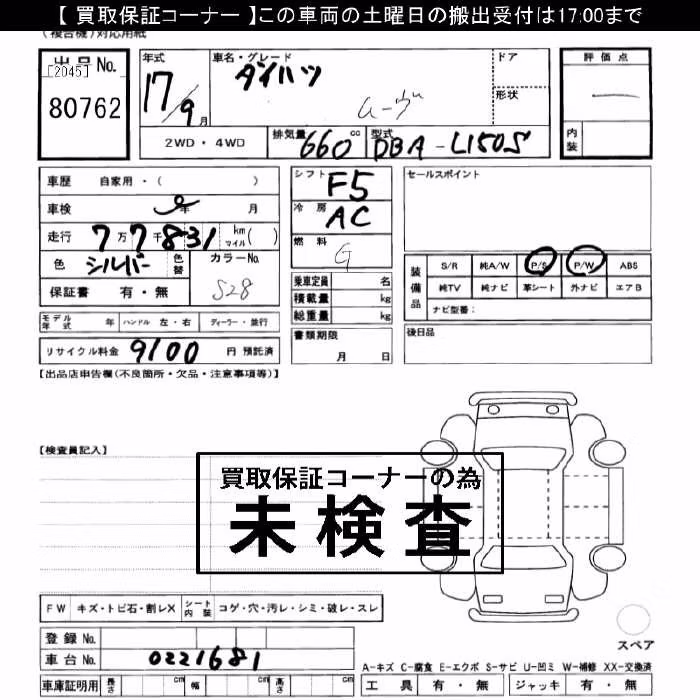 【 買取保証コーナー 】この車両の土曜日の搬出受付は17:00まで
(複合機)対応用紙
出品No.
[2045]
80762
年式
17/9月
車名・グレード
ダイハツ
ムーヴ
ドア
形状
評価点
内装
2WD・4WD
排気量
660cc
型式
DBA-L150S
車歴 自家用・( )
車検 年 月
走行 7万7千831 km マイル( )
色 シルバー 色替 カラーNo.
S28
保証書 有・無
シフト
F5
冷房
AC
燃料
G
乗車定員 名
積載量 kg
総重量 kg
セールスポイント
装備品
S/R 純A/W P/S P/W ABS
純TV 純ナビ 革シート 外ナビ エアB
ナビ型番:
モデル年式 年 ハンドル 左・右 ディーラー・並行
書類期限
月 日
後日品
リサイクル料金 9100 円 預託済
【出品店申告欄(不良箇所・欠品・注意事項等)】
【検査員記入】
買取保証コーナーの為
未検査
FW キズ・トビ石・割レX シート内装 コゲ・穴・汚レ・シミ・破レ・スレ
登録No.
車台No. 0221681
車庫証明用 長さ cm 幅 cm 高さ cm
スペア
A-キズ C-腐食 E-エクボ S-サビ U-凹ミ W-補修 XX-交換済
工具 有・無 ジャッキ 有・無